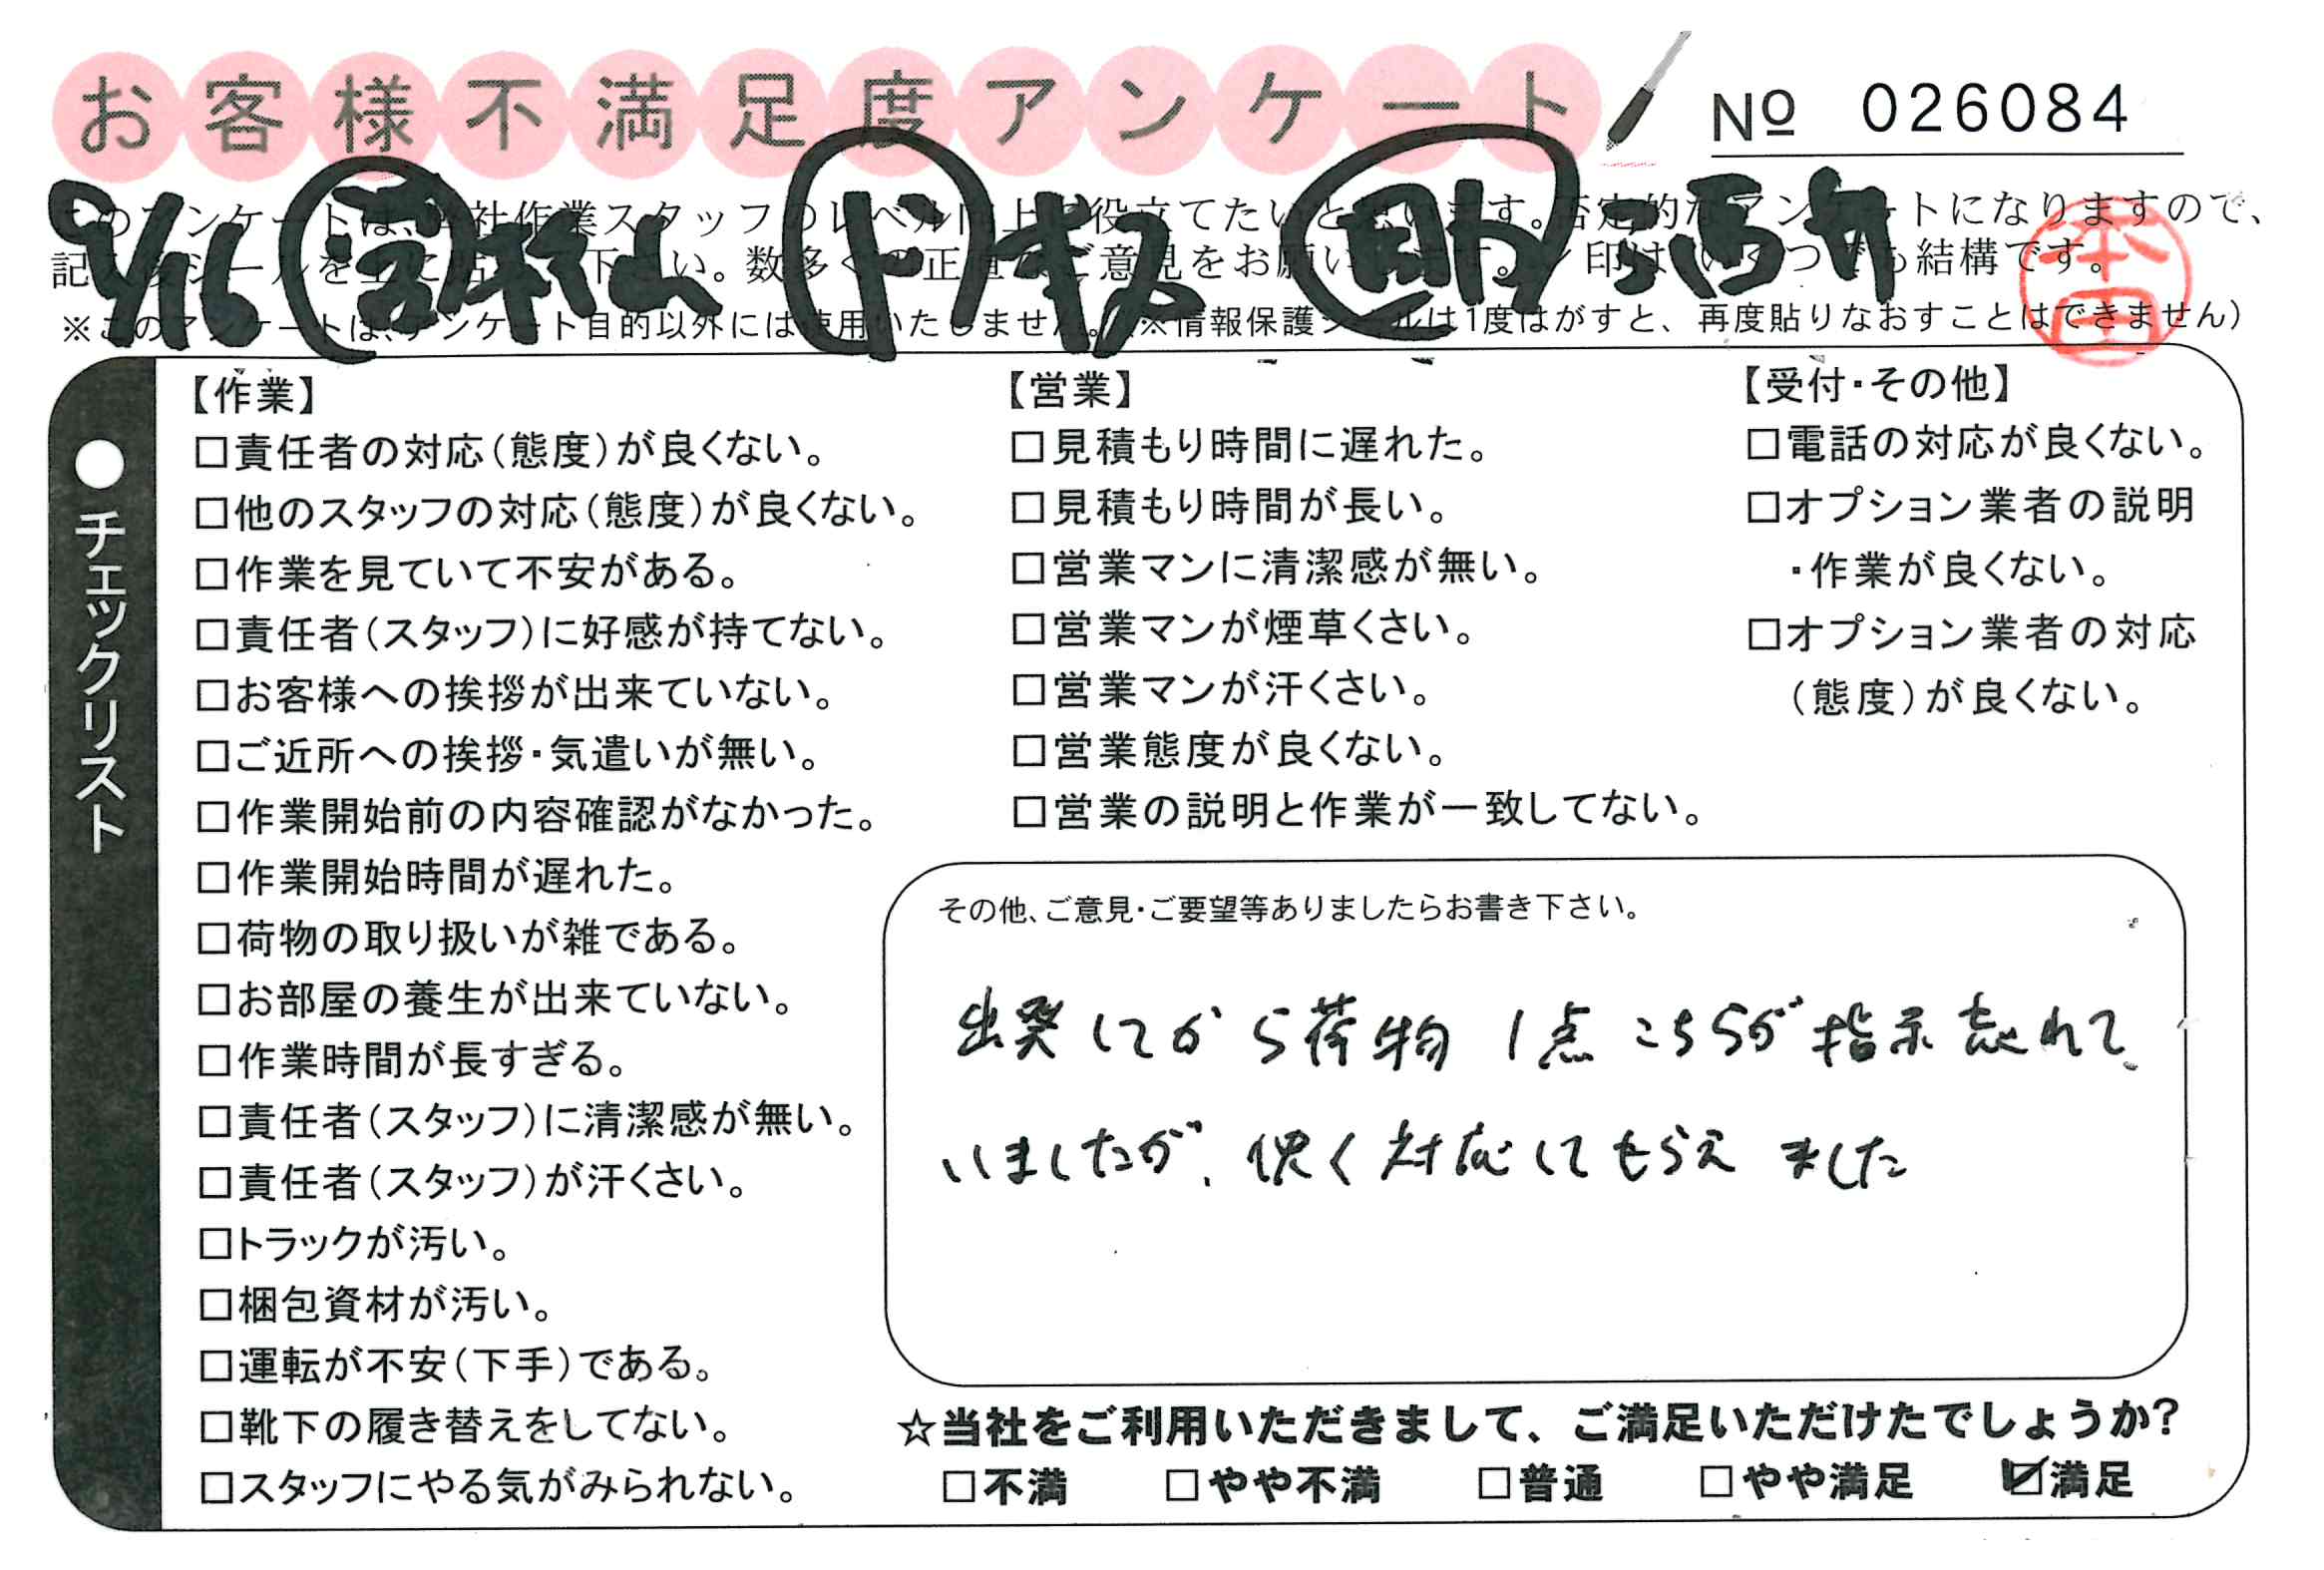 お客様不満足度アンケート
№ 026084
9/16 杉山 ド 剛 西
本田
※このアンケートは、アンケート目的以外には使用いたしません。（※情報保護シールは1度はがすと、再度貼りなおすことはできません）
●チェックリスト
【作業】
□責任者の対応（態度）が良くない。
□他のスタッフの対応（態度）が良くない。
□作業を見ていて不安がある。
□責任者（スタッフ）に好感が持てない。
□お客様への挨拶が出来ていない。
□ご近所への挨拶・気遣いが無い。
□作業開始前の内容確認がなかった。
□作業開始時間が遅れた。
□荷物の取り扱いが雑である。
□お部屋の養生が出来ていない。
□作業時間が長すぎる。
□責任者（スタッフ）に清潔感が無い。
□責任者（スタッフ）が汗くさい。
□トラックが汚い。
□梱包資材が汚い。
□運転が不安（下手）である。
□靴下の履き替えをしてない。
□スタッフにやる気がみられない。
【営業】
□見積もり時間に遅れた。
□見積もり時間が長い。
□営業マンに清潔感が無い。
□営業マンが煙草くさい。
□営業マンが汗くさい。
□営業態度が良くない。
□営業の説明と作業が一致してない。
【受付・その他】
□電話の対応が良くない。
□オプション業者の説明
・作業が良くない。
□オプション業者の対応
（態度）が良くない。
その他、ご意見・ご要望等ありましたらお書き下さい。
出発してから荷物1点こちらが指示忘れて
いましたが、快く対応してもらえました
☆当社をご利用いただきまして、ご満足いただけたでしょうか？
□不満 □やや不満 □普通 □やや満足 ☑満足